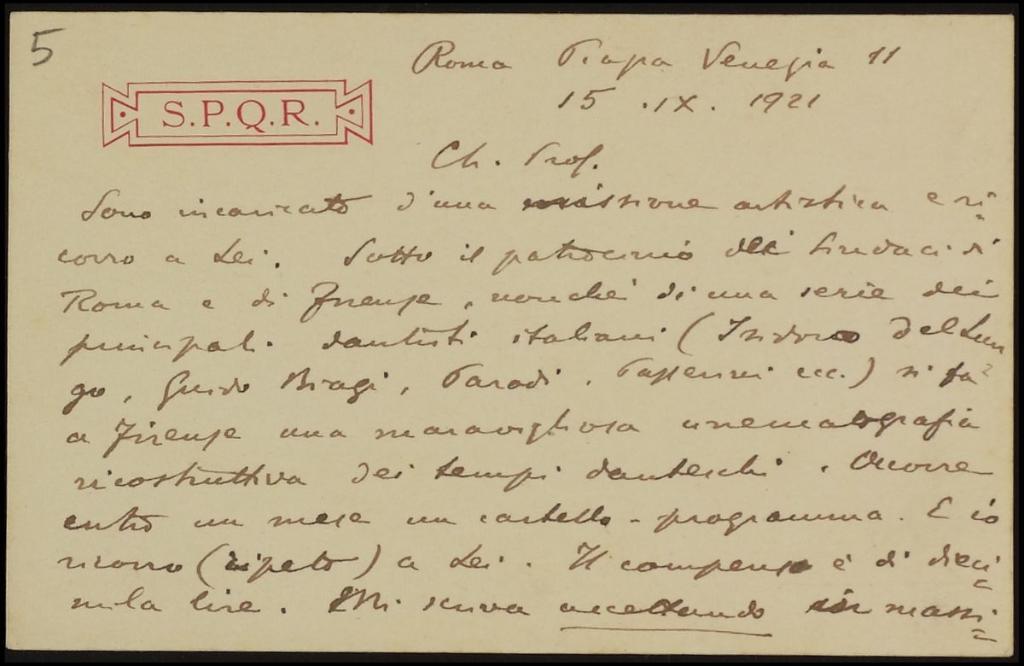 5
Roma Piazza Venezia 11
S.P.Q.R.
15 . IX . 1921
Ch. Prof.
Sono incaricato d'una missione artistica e ri=
corro a Lei. Sotto il patrocinio dei Sindaci di
Roma e di Firenze, nonché di una serie dei
principali dantisti italiani (Isidoro Del Lun
go, Guido Biagi, Parodi, Passerini ecc.) si fa
a Firenze una maravigliosa cinematografia
ricostruttiva dei tempi danteschi. Occorre
entro un mese un cartello-programma. E io
ricorro (ripeto) a Lei. Il compenso è di dieci
mila lire. Mi scriva accettando in massi=